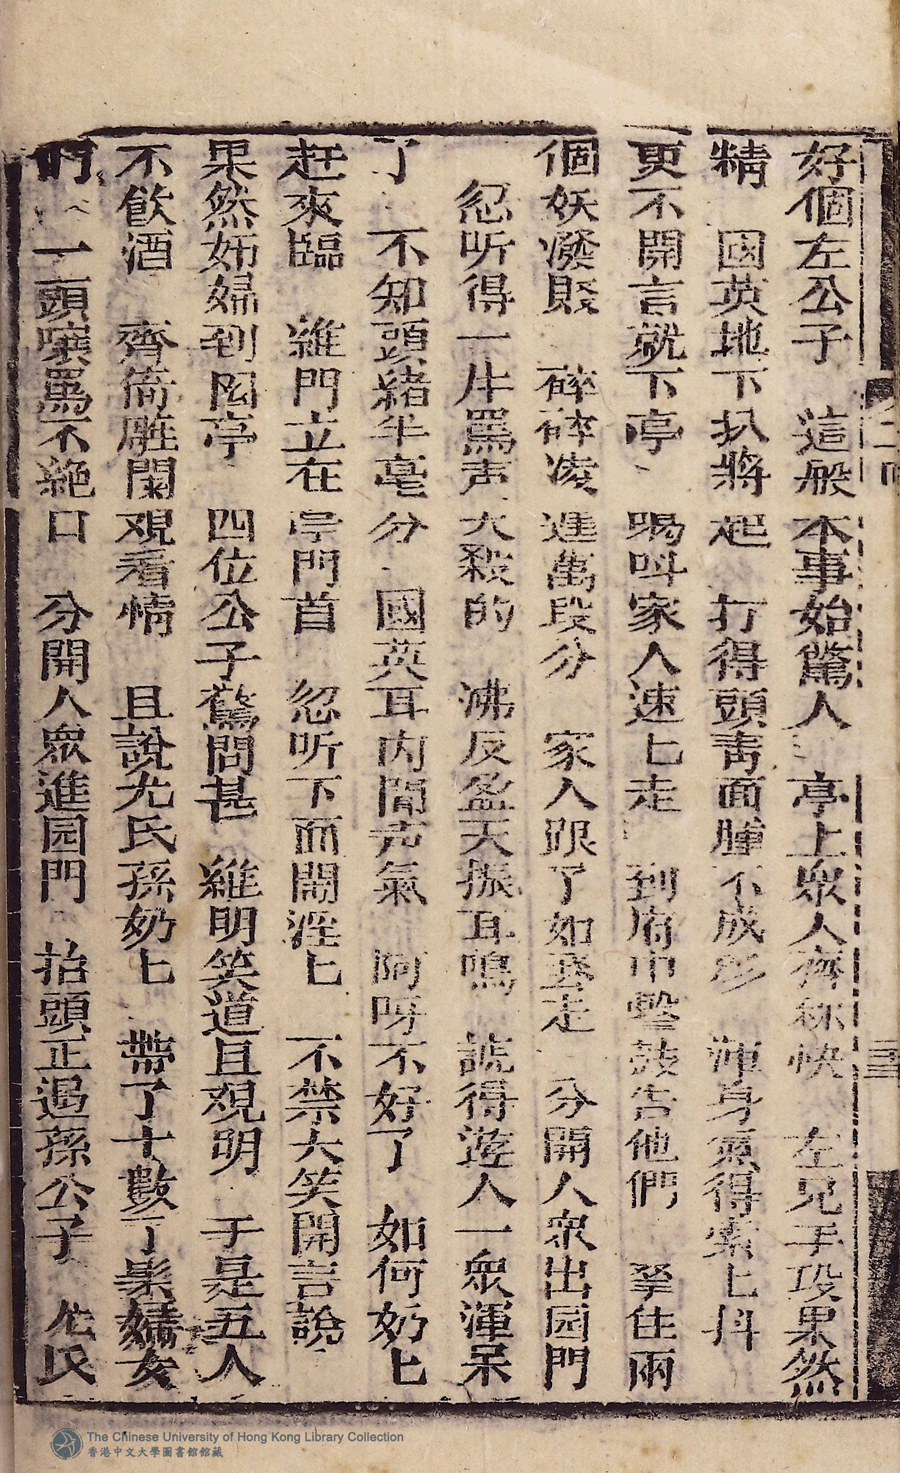 好個左公子　這般本事始驚人　亭上眾人齊称快　左兄手段果然
精　國英地下扒將起　打得頭青面腫不成形　渾身氣得索匕抖
更不開言就下亭　喝呌家人速匕走　到府中擊鼓告他們　拏住兩
個妖潑賤　碎碎凌遲萬段分　家人跟了如飛走　分開人眾出园門
忽听得一片罵声大殺的　沸反盈天振耳鳴　諕得遊人一眾渾呆
了　不知頭緒半毫分　國英耳內聞声氣　阿呀不好了　如何奶匕
赶來臨　維門立在亭門首　忽听下面鬧淫匕　不禁大笑開言說
果然妬婦到园亭　四位公子驚問甚　維明笑道且观明　于是五人
不飲酒　齊倚雕闌观看情　且說尤氏孫奶匕　帶了十數丫鬟婦女
們　一頭嚷罵不絕口　分開人眾進园門　抬頭正遇孫公子　尤氏
The Chinese University of Hong Kong Library Collection
香港中文大學圖書館館藏